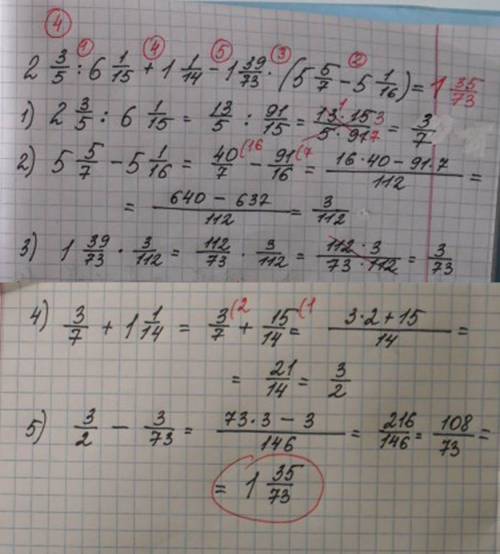 ④
2 3/5 : 6 1/15 + 1 1/14 - 1 39/73 · (5 5/7 - 5 1/16) = 1 35/73
① ④ ⑤ ③ ②
1) 2 3/5 : 6 1/15 = 13/5 : 91/15 = 13·15/5·91 = 3/7
1 3 7
2) 5 5/7 - 5 1/16 = 40/7 (16 - 91/16 (7 = 16·40-91·7/112 =
= 640-637/112 = 3/112
3) 1 39/73 · 3/112 = 112/73 · 3/112 = 112·3/73·112 = 3/73
4) 3/7 + 1 1/14 = 3/7 (2 + 15/14 (1 = 3·2+15/14 =
= 21/14 = 3/2
5) 3/2 - 3/73 = 73·3-3/146 = 216/146 = 108/73 =
= 1 35/73